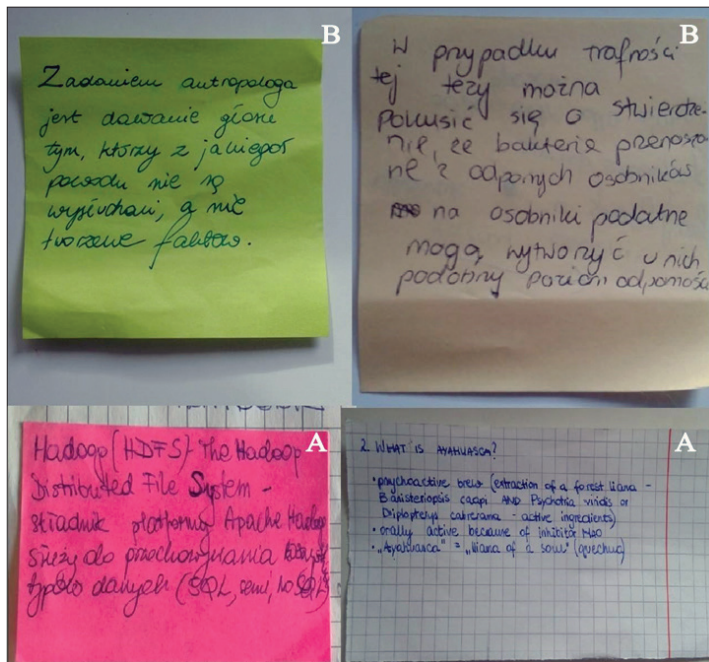 B
Zadaniem antropologa
jest dawanie głosu
tym, którzy z jakiegoś
powodu nie są
wysłuchani, a nie
tworzenie faktów.
B
W przypadku trafności
tej tezy można
pokusić się o stwierdze-
nie, że bakterie przenoszo-
ne z odpornych osobników
na osobniki podatne
mogą wytworzyć u nich
podobny poziom odporności
A
Hadoop (HDFS) - The Hadoop
Distributed File System -
składnik platformy Apache Hadoop
służy do przechowywania
typów danych (SQL, semi, no SQL)
A
2. WHAT IS AYAHUASCA?
• psychoactive brew (extraction of a forest liana -
Banisteriopsis caapi AND Psychotria viridis or
Diplopterys cabrerana - active ingredients)
• orally active because of inhibitor MAO
• „Ayahuasca" = „liana of a soul" (quechua)